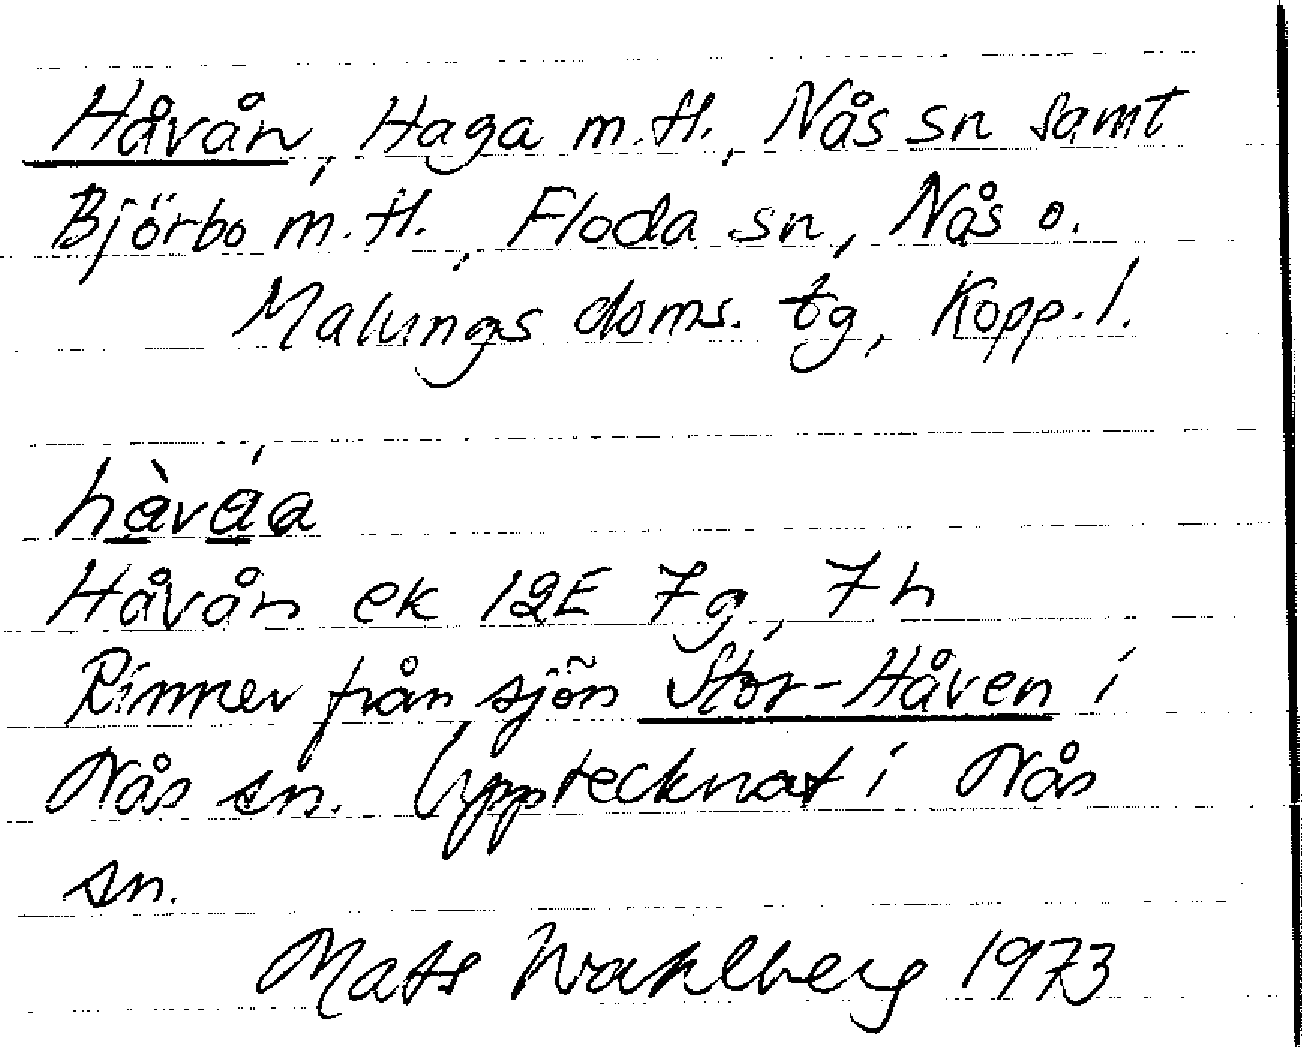 Håvån, Haga m.fl., Nås sn samt
Björbo m.fl., Floda sn, Nås o.
Malungs doms. tg, Kopp.l.
hàváa
Håvån ek 12E 7g, 7h
Rinner från sjön Stor-Håven i
Nås sn. Upptecknat i Nås
sn.
Mats Wahlberg 1973